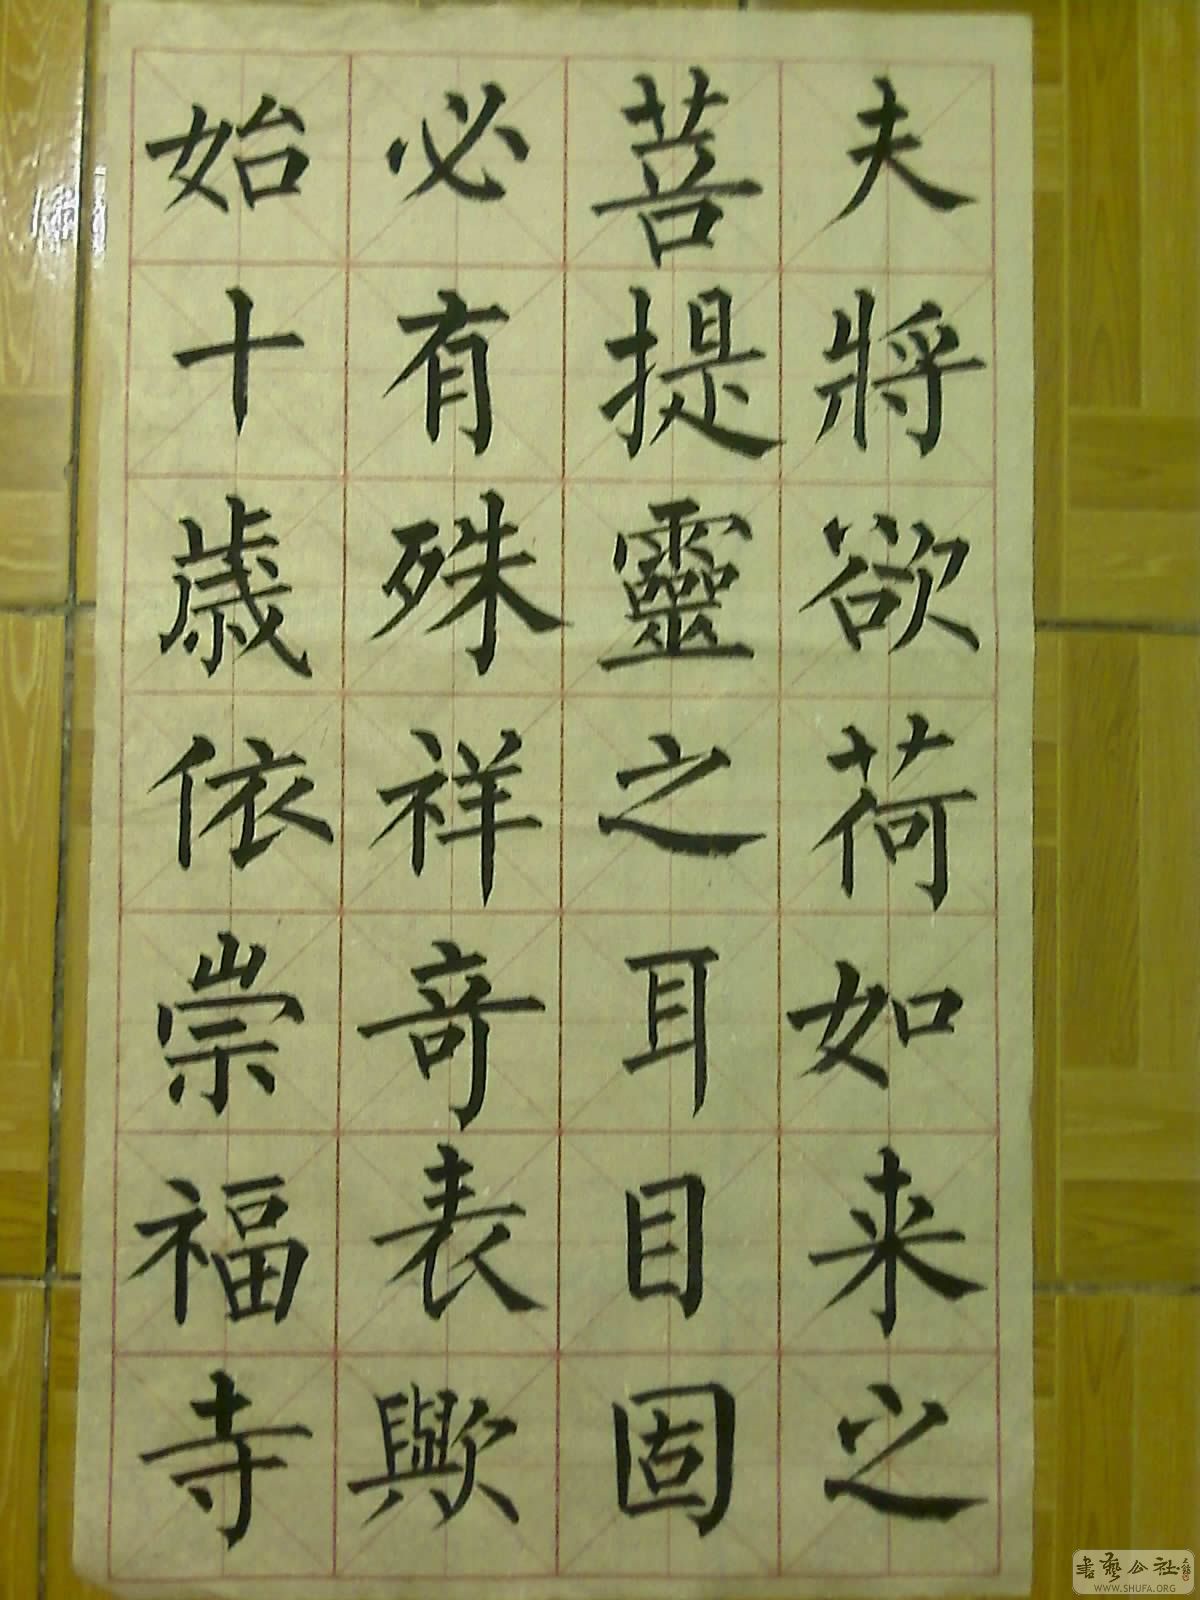 夫將欲荷如来之
菩提靈之耳目固
必有殊祥奇表歟
始十歲依崇福寺
書藝公社
WWW.SHUFA.ORG